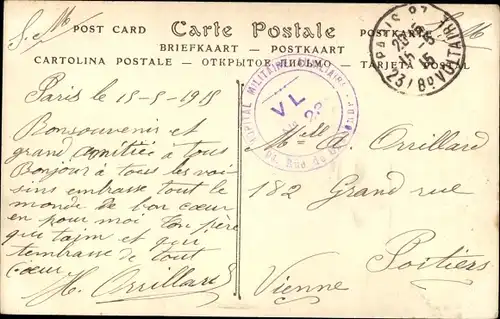 S. M
POST CARD Carte Postale POSTKARTE
BRIEFKAART — POSTKAART
CARTOLINA POSTALE — ОТКРЫТОЕ ПИСЬМО — TARJETA POSTAL
S. M.
PARIS 87
20 25
25 - 5
15
23 / Bd VOLTAIRE
HOPITAL MILITAIRE AUXILIAIRE
V L
22
Rue de
Paris 15-5-1915
Bonsouvenir et
grand amitiée à tous
Bonjour à tous les voi
sins embrasse tout le
monde de bon cœur
en pour moi ton père
que taim et qui
tembrasse de tout
cœur
H. Orrillard
Mlle A. Orrillard
182 Grand rue
Poitiers
Vienne